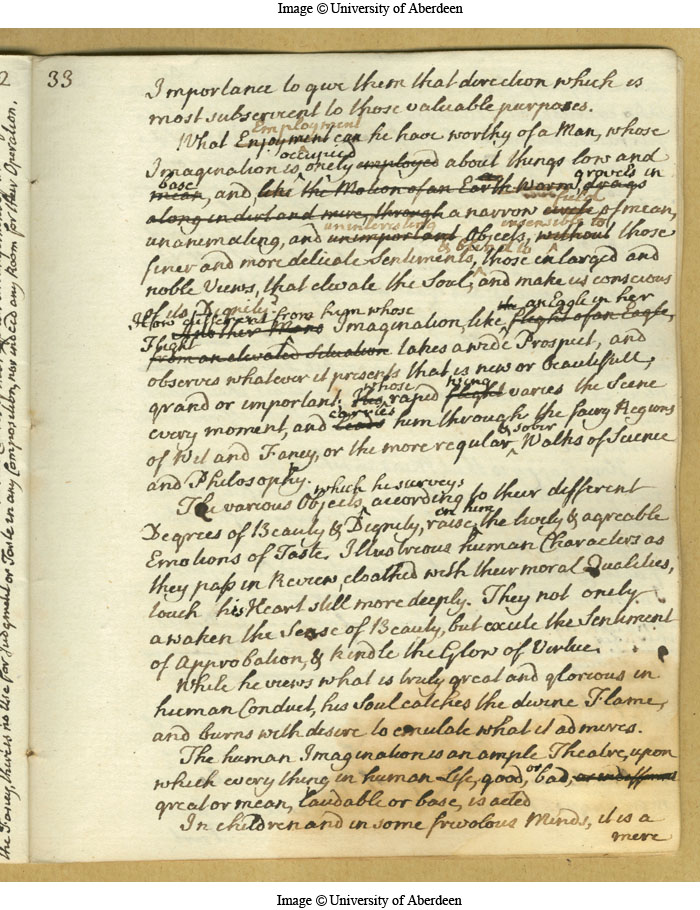 Image © University of Aberdeen
2
33
Importance to give them that direction which is
most subservient to those valuable purposes.
Employment
What Enjoyment can he have worthy of a Man, whose
occupied
Imagination is onely employed about things low and
base
grovels in
mean, and, like the Motion of an Earth Worm, drags
field
along in dirt and mire, through a narrow circle of mean,
uninteresting
insensible to
unanimating, and unimportant Objects, without those
finer and more delicate Sentiments, those enlarged and
noble Views, that elevate the Soul, and make us conscious
of its Dignity.
How different from him whose
the an Eagle in her
Another Mans Imagination, like flight of an Eagle,
Flight
from an elevated Situation takes a wide Prospect, and
observes whatever it presents that is new or beautifull,
whose
wing
grand or important. His rapid flight varies the Scene
carries
every moment, and leads him through the fairy Regions
& sober
of Wit and Fancy, or the more regular Walks of Science
and Philosophy.
which he surveys
The various Objects, according to their different
on him
Degrees of Beauty & Dignity, raise the lively & agreable
Emotions of Taste. Illustrious human Characters as
they pass in Review, cloathed with their moral Qualities,
touch his Heart still more deeply. They not onely
awaken the Sense of Beauty, but excite the Sentiment
of Approbation, & kindle the Glow of Virtue.
While he views what is truly great and glorious in
human Conduct, his Soul catches the divine Flame,
and burns with desire to emulate what it admires.
The human Imagination is an ample Theatre, upon
or
which every thing in human Life, good, bad, or indifferent
great or mean, laudable or base, is acted
In children and in some frivolous Minds, it is a
mere
the Fancy, there is no Use for Judgment or Taste in any Composition, nor indeed any Room for their Operation.
Image © University of Aberdeen